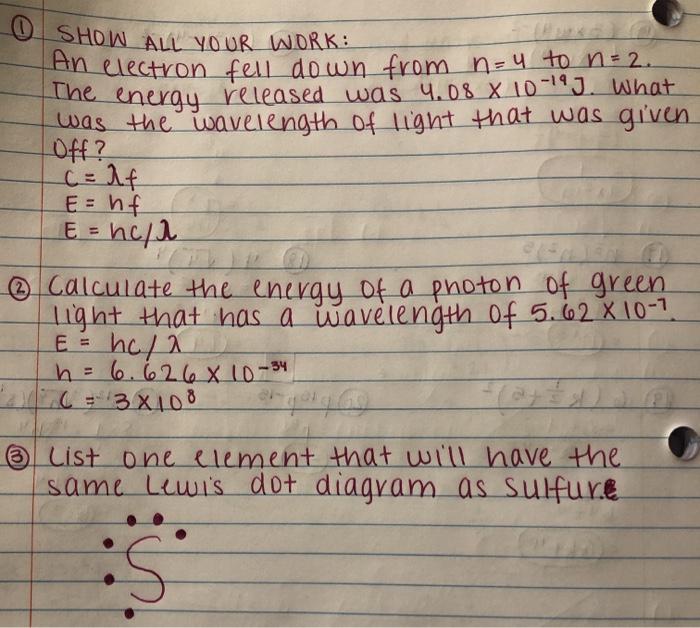 ① SHOW ALL YOUR WORK:
An electron fell down from n=4 to n=2.
The energy released was 4.08 X 10⁻¹⁹J. What
was the wavelength of light that was given
Off?
C = λf
E = hf
E = hc/λ
② Calculate the energy of a photon of green
light that has a wavelength of 5.62 X 10⁻⁷.
E = hc/λ
h = 6.626 X 10⁻³⁴
C = 3X10⁸
③ List one element that will have the
same Lewis dot diagram as sulfure
S